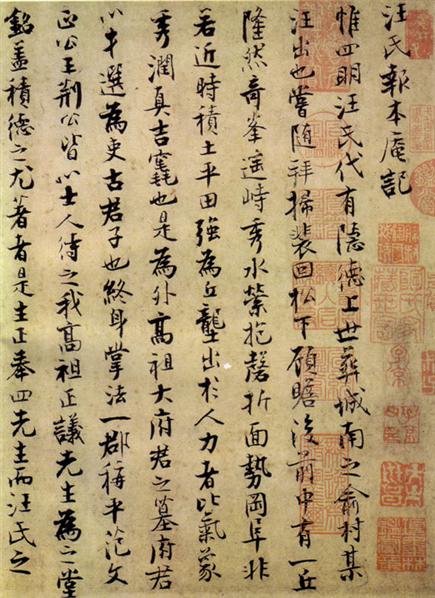 汪氏報本庵記
惟四明汪氏代有隱德上世葬城南之俞村某
汪出也嘗隨拜掃裴回松下顧瞻後前中有一丘
隆然奇峯遥峙秀水縈抱磬折面勢岡阜非
若近時積土平田強為丘壟出於人力者比氣象
秀潤真吉竁也是為外高祖大府君之墓府君
以才選為吏古君子也終身掌法一郡稱平范文
正公王荊公皆以士人待之我高祖正議先生為之堂
銘盖積德之尤著者是生正奉四先生而汪氏之